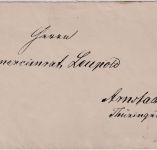 Herrn
mercienrat Leupold
Arnsta
Thüringe